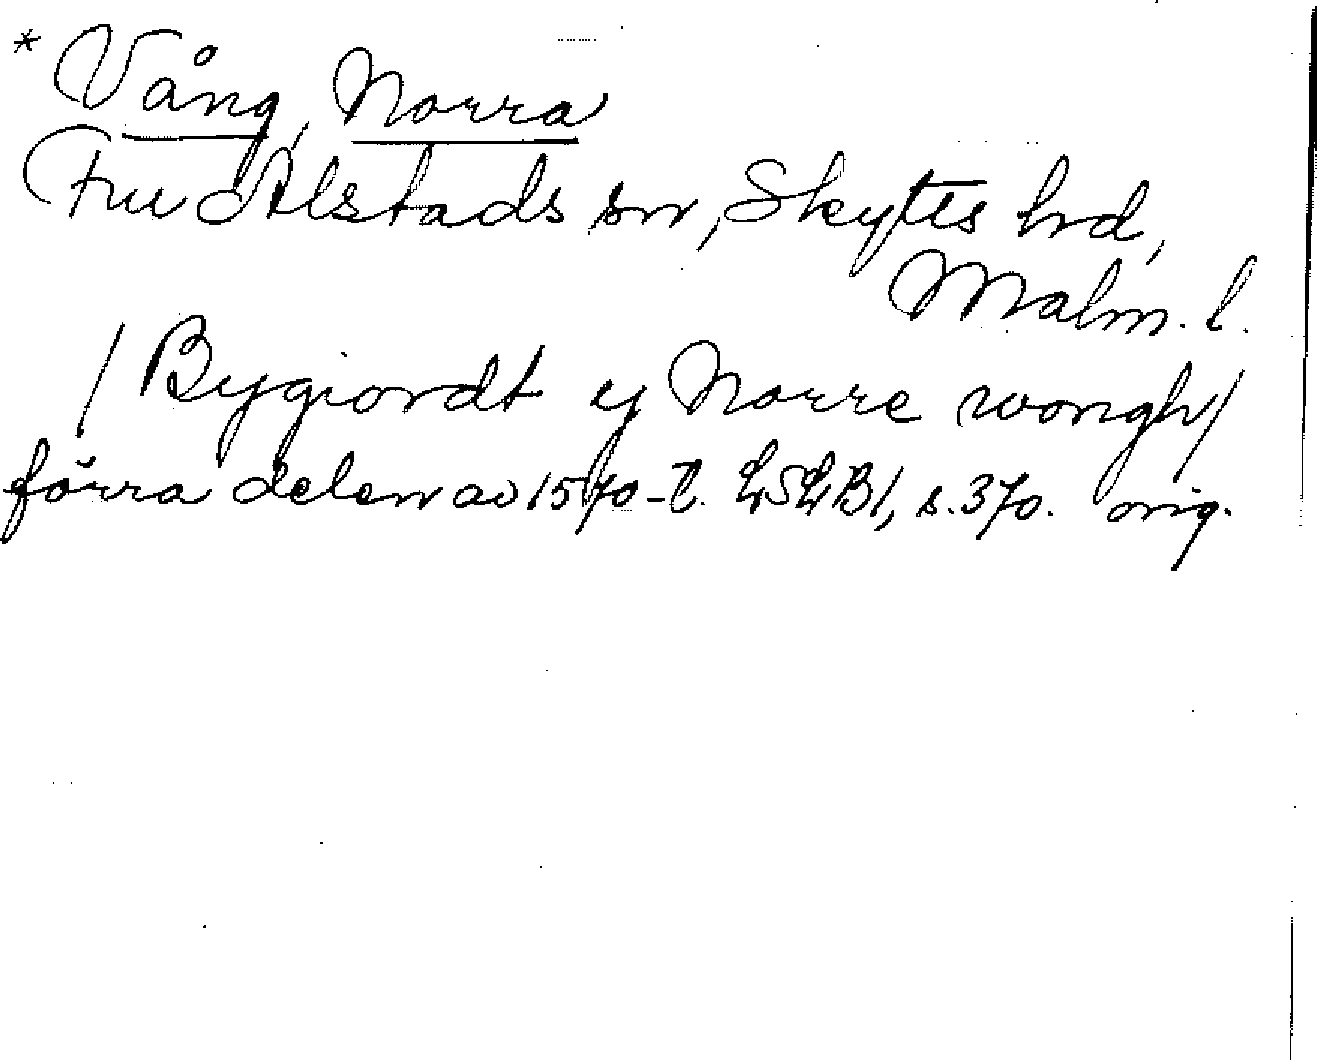 * Vång, Norra
Fru Alstads sn, Skytts hd,
Malm. l.
/ Bygiordt y Norre wongh /
förra delen av 1570-t. LSLB1, s. 370. orig.